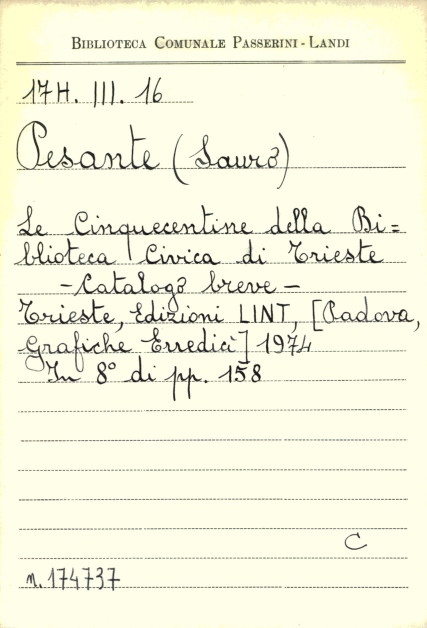 BIBLIOTECA COMUNALE PASSERINI - LANDI
17H. III. 16
Pesante (Sauro)
Le Cinquecentine della Bi=
blioteca Civica di Trieste
- Catalogo breve -
Trieste, Edizioni LINT, [Padova,
Grafiche Erredici] 1974
In 8° di pp. 158
C
n. 174737